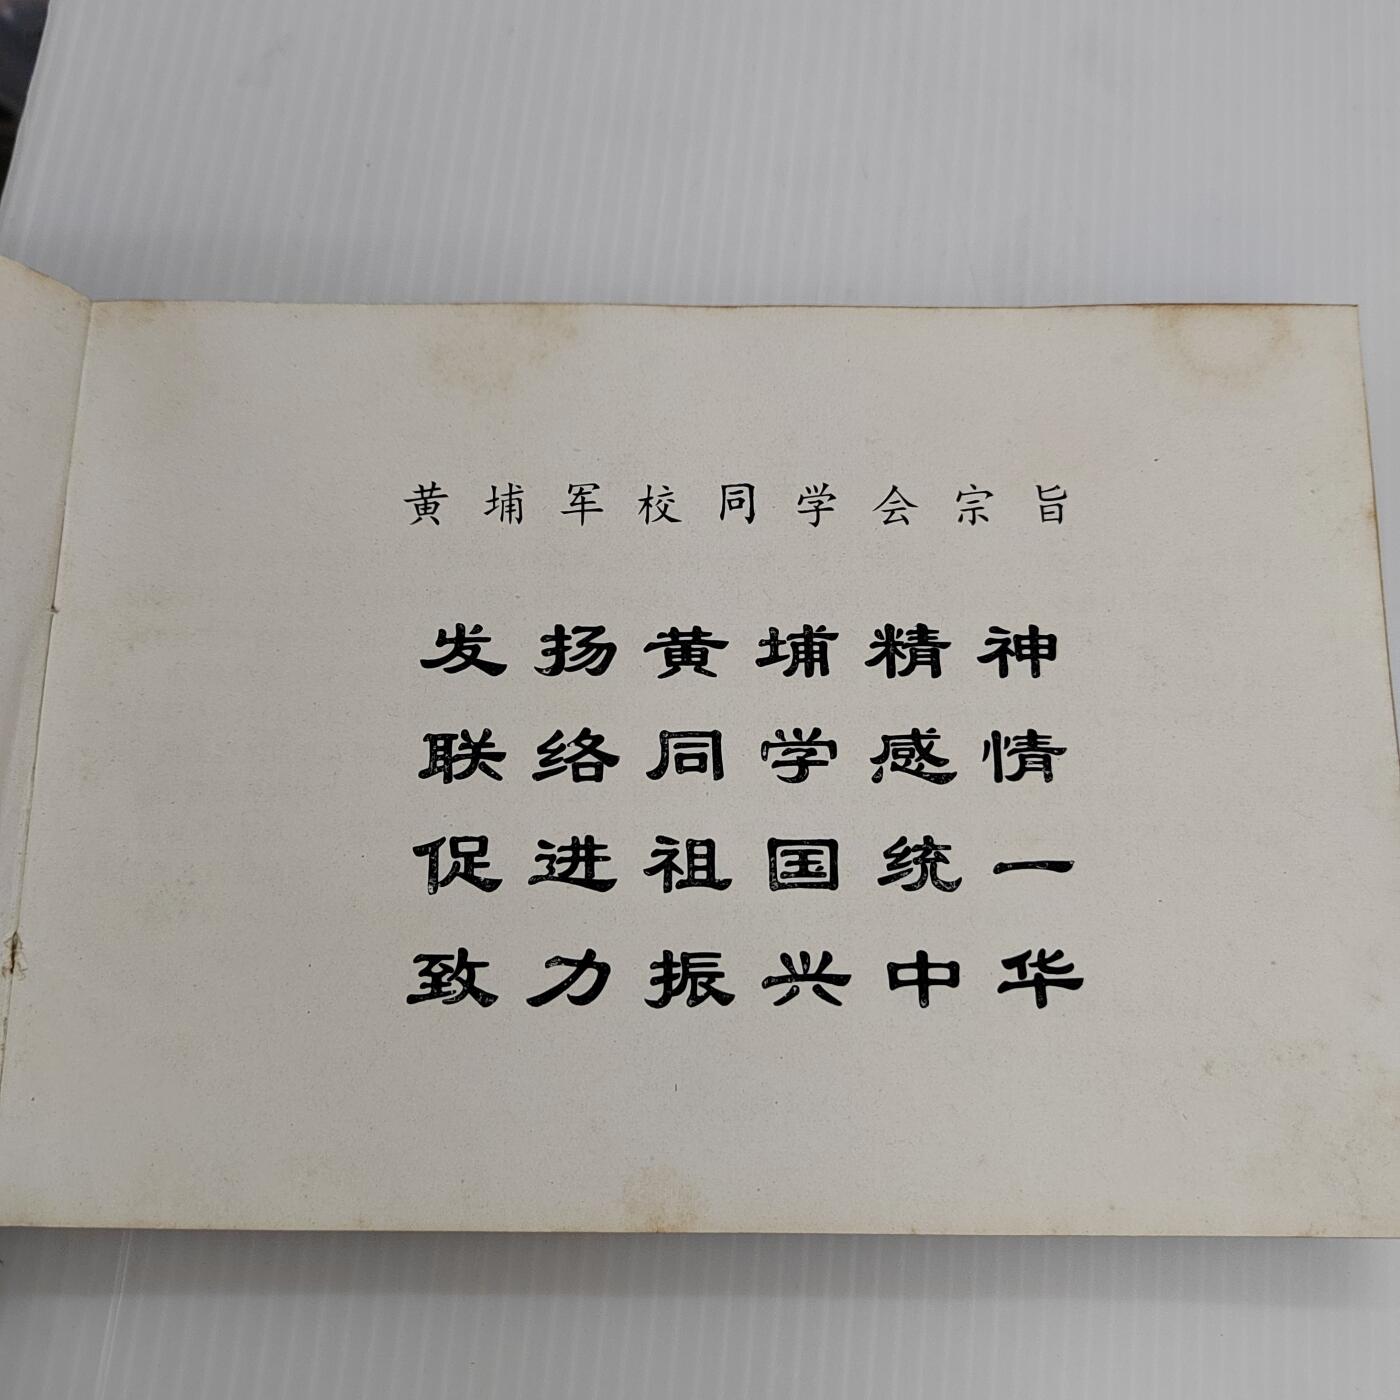 黄埔军校同学会宗旨
发扬黄埔精神
联络同学感情
促进祖国统一
致力振兴中华